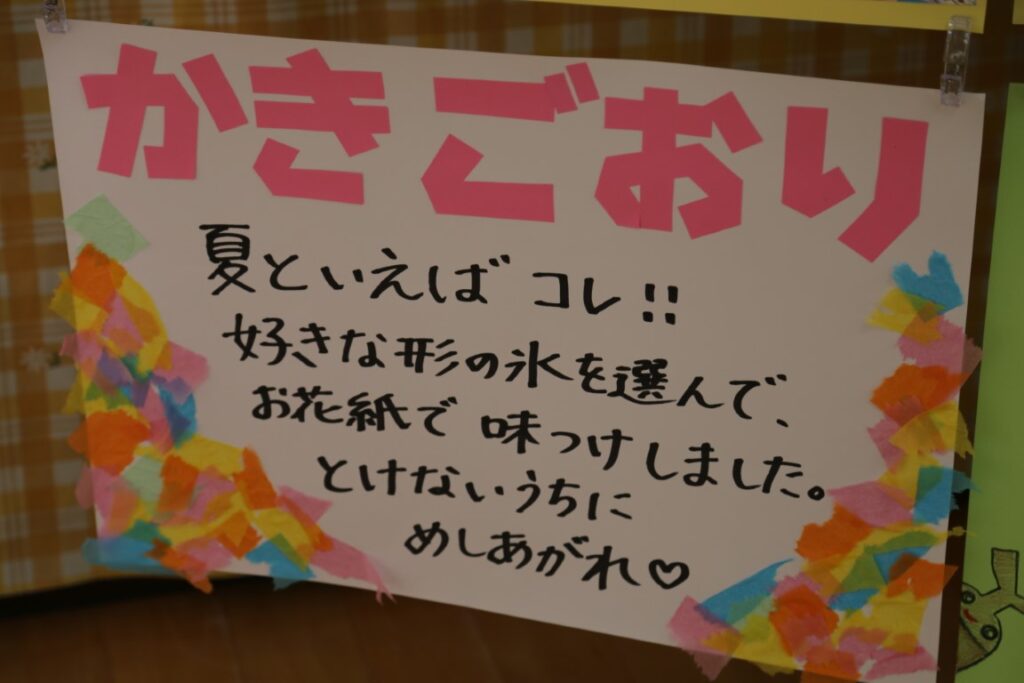 かきごおり
夏といえば コレ!!
好きな形の氷を選んで、
お花紙で 味つけしました。
とけないうちに
めしあがれ♡